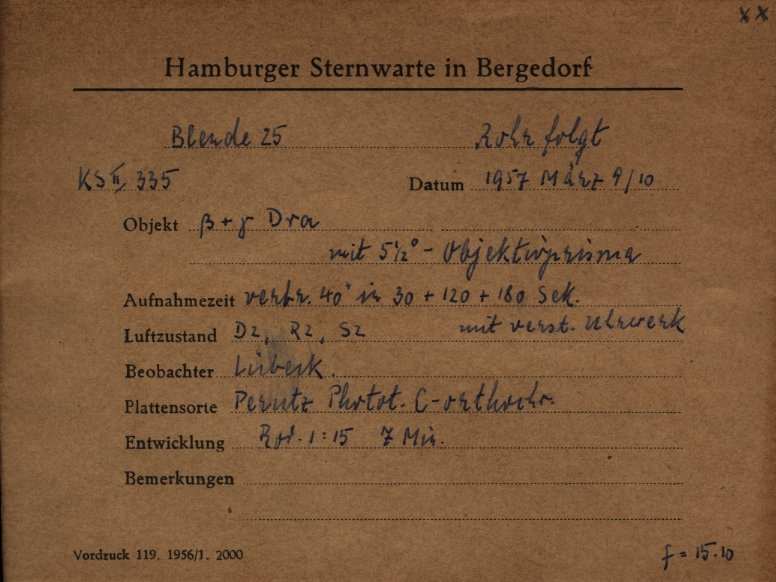 x x
Hamburger Sternwarte in Bergedorf
Blende 25 Rohr folgt
KS II 335 Datum 1957 März 9/10
Objekt β + γ Dra
mit 5 1/2° - Objektivprisma
Aufnahmezeit verbr. 40" in 30 + 120 + 180 Sek.
Luftzustand D2, R2, S2 mit verst. Uhrwerk
Beobachter Lübeck.
Plattensorte Perutz Phot. C-orthochr.
Entwicklung Rod. 1:15 7 Min.
Bemerkungen
Vordruck 119. 1956/1. 2000 f = 15.10